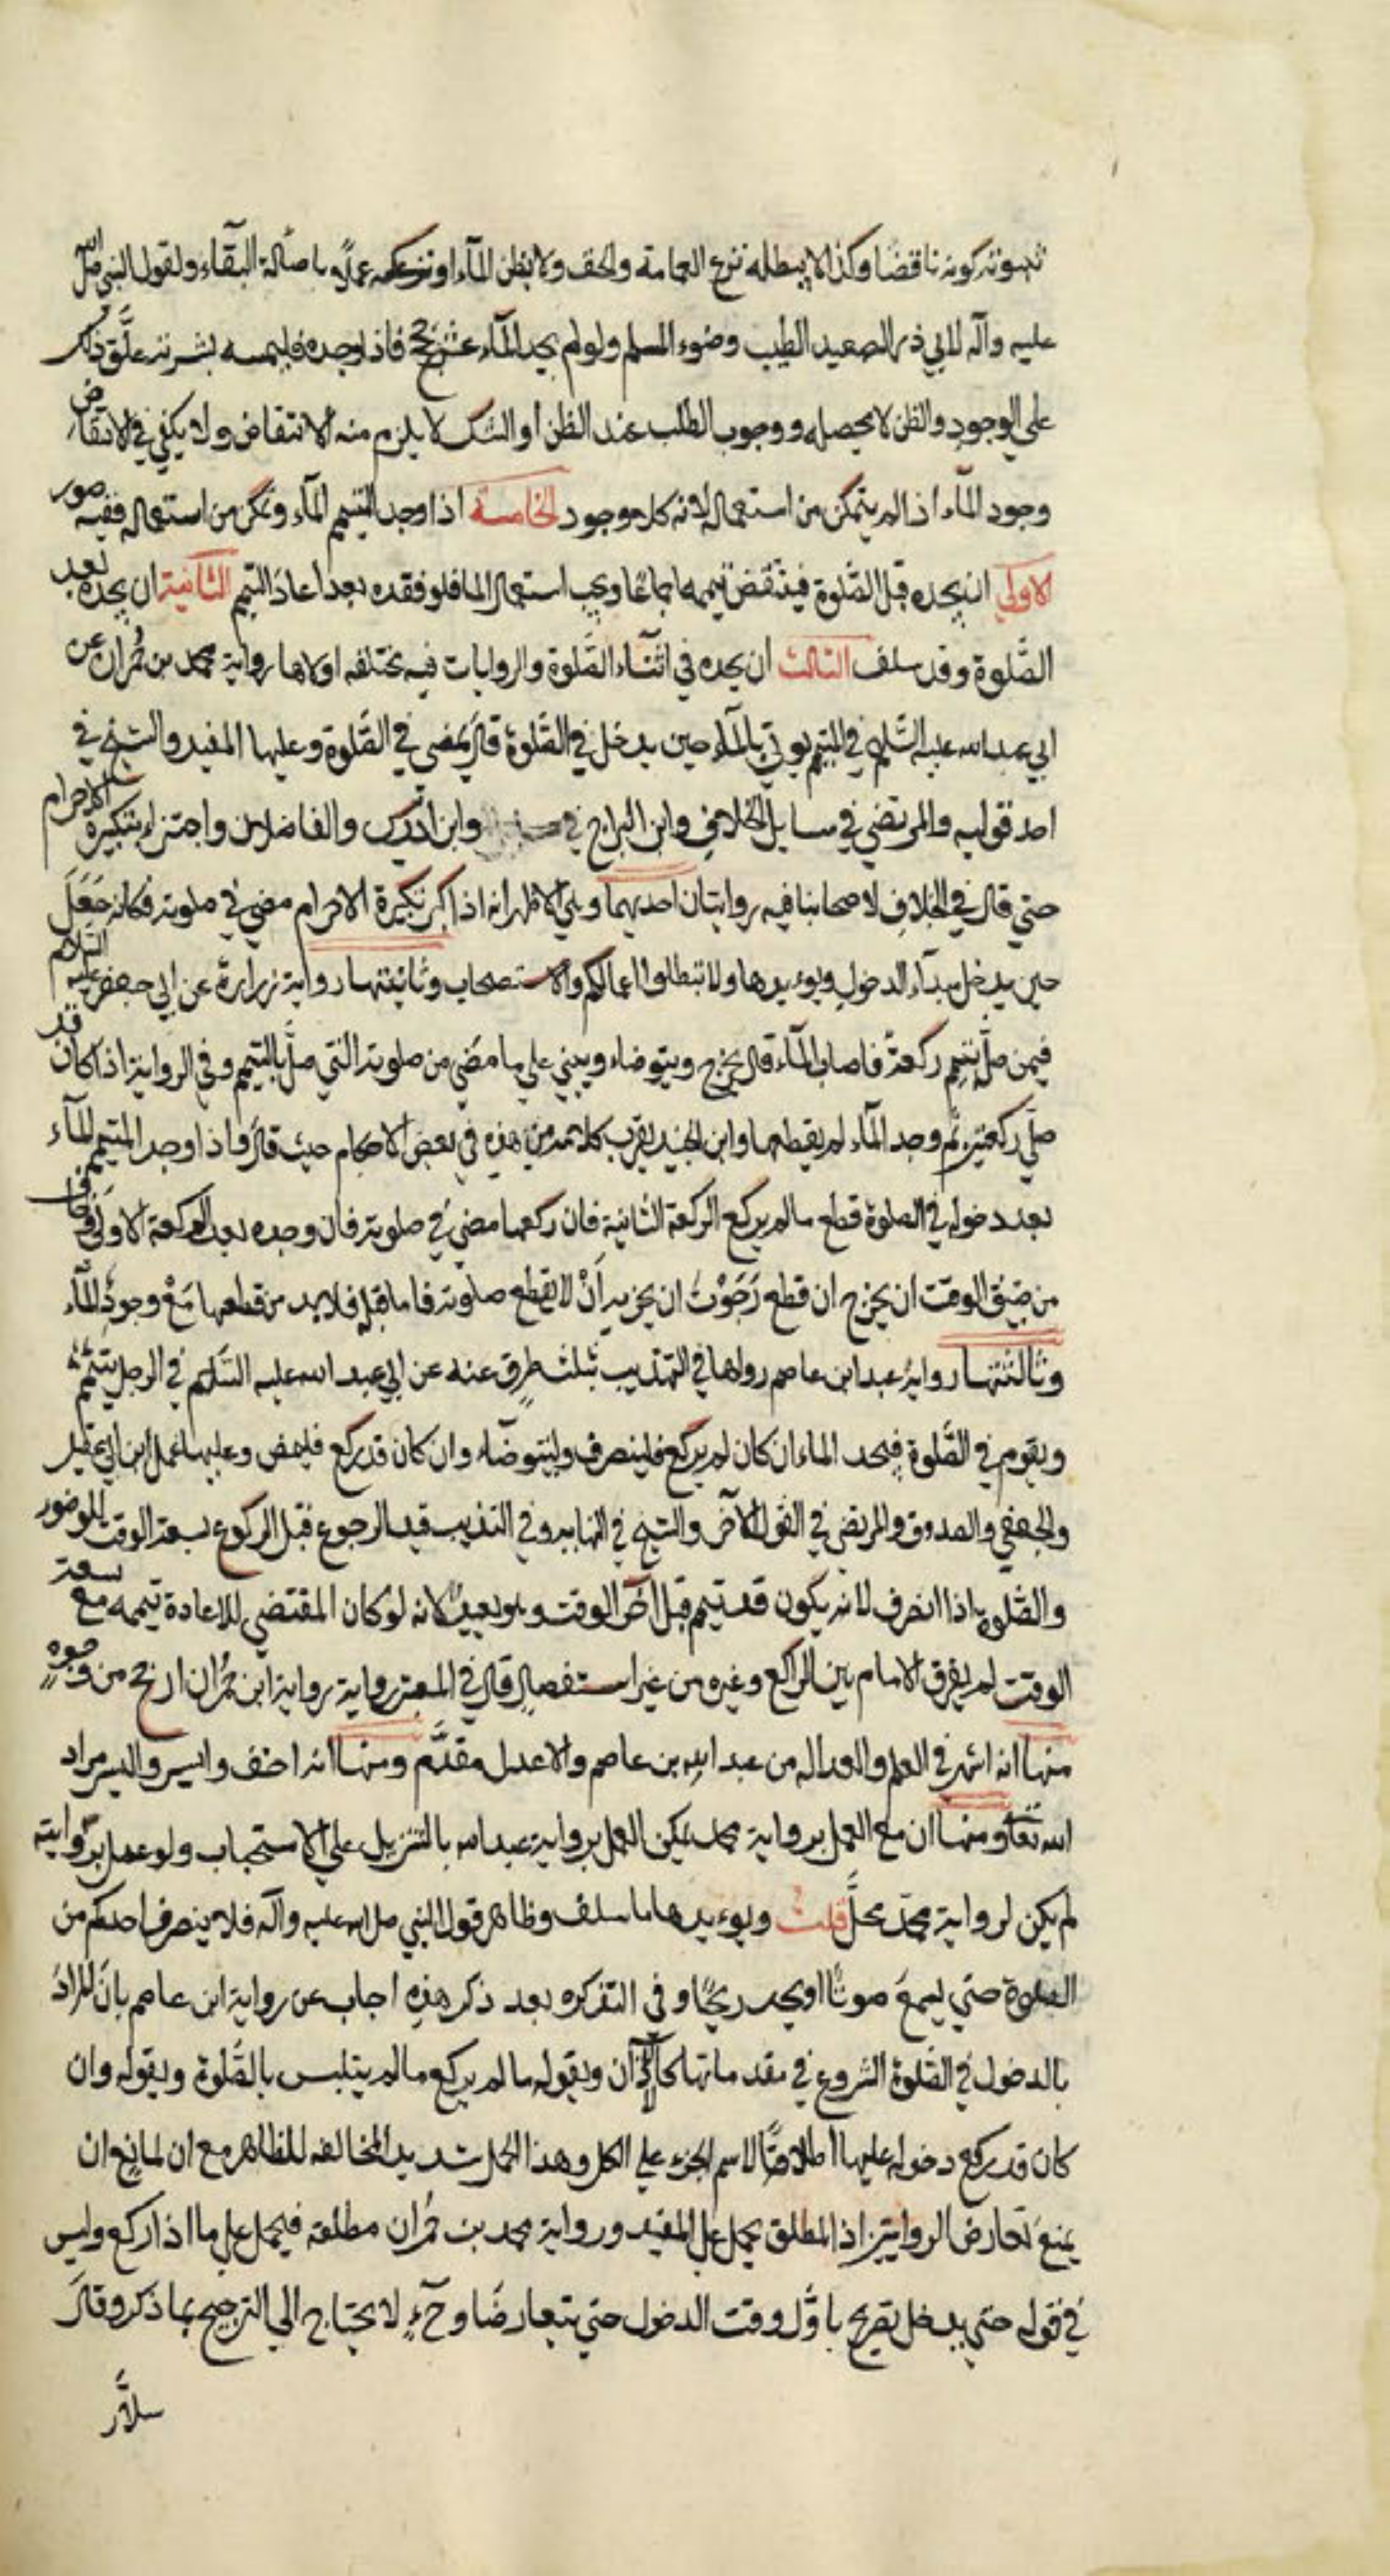 ثبوته كونه ناقضا وكذا لا يبطله نزع العمامة والخف ولا بظن المآء او شكه عملا باصالة البقآء ولقول النبي صلى الله
عليه وآله لابي ذر الصعيد الطيب وضوء المسلم ولو لم يجد المآء عشر حجج فاذا وجده فليمسه بشرته علّق ذلك
على الوجود والظن لا يحصله ووجوب الطلب عند الظن او الشك لا يلزم منه الانتقاض ولا يكفي في الانتقاض
وجود المآء اذا لم يتمكن من استعماله لانه كلا موجود الخامسة اذا وجد المتيمم المآء وتمكن من استعماله ففيه صور
الاولى ان يجده قبل الصّلوة فينتقض تيممه اجماعًا ويجب استعمال الما فلو فقده بعد اعاد التيمم الثانية ان يجده بعد
الصّلوة وقد سلف الثالث ان يجده في اثنآء الصّلوة والروايات فيه مختلفه اولاها رواية محمد بن حُمران عن
ابي عبد الله عليه السّلام في المتيمم يوتى بالمآء حين يدخل في الصّلوة قال يمضي في الصّلوة وعليها المفيد والشيخ في
احد قوليه والمرتضى في مسايل الخلاف وابن البراج في وابن ادريس والفاضلان واجتزاء بتكبيرة الاحرام
حتي قال في الخلاف لاصحابنا فيه روايتان احديهما وهي الاظهر انه اذا كبر تكبيرة الاحرام مضى في صلوته فكانه جَعَلَ
حين يدخل مبدآء الدخول ويويدها ولا تبطلوا اعمالكم والاستصحاب وثانيتها رواية زرارة عن ابي جعفر عليه السّلام
فيمن صلّى بتيمم ركعة فاصاب المآء قال يخرج ويتوضاء ويبني على ما مضى من صلوته التي صلّى بالتيمم وفي الرواية اذا كان قد
صلّى ركعتين ثم وجد المآء لم يقطعها وابن الجنيد يقرب كلامه من هذه في بعض الاحكام حيث قال فاذا وجد المتيمم المآء
بعد دخوله في الصلوة قطع ما لم يركع الركعة الثانية فان ركعها مضى في صلوته فان وجده بعد الركعة الاولى وخاف
من ضيق الوقت ان يخرج ان قطع رَجَوْتُ ان يجزيه اَنْ لا يقطع صلوته فاما قبله فلا بد من قطعها مَعْ وجود المآء
وثالثتها رواية عبد ابن عاصم رواها في التهذيب بثلث طرق عنه عن ابي عبد الله عليه السّلام في الرجل يتيمّم
ويقوم في الصّلوة فيجد الماء ان كان لم يركع فلينصرف وليتوضّاء وان كان قد ركع فليمض وعليها عمل ابن ابي عقيل
والجعفي والصدوق والمرتضى في القول الآخر والشيخ في النهاية وفي التهذيب قيد الرجوع قبل الركوع بسعة الوقت للوضور
والصّلوة اذا انصرف لانه يكون قد تيمم قبل اخر الوقت وهو بعيد لانه لو كان المقتضي للاعادة تيممه مع سعة
الوقت لم يفرق الامام بين الراكع وغيره من غير استفصال قال في المعتبر رواية رواية ابن حُمران ارجح من وجوهٍ
منها انه اشهر في العلم والعداله من عبد الله بن عاصم والاعدل مقدّم ومنها انه اخف وايسر واليسر مراد
الله تعا ومنها ان مع العمل برواية محمد يمكن العمل برواية عبد الله بالتنزيل على الاستحباب ولو عمل بروايته
لم يكن لرواية محمّد محلّ قلت ويويدها ما سلف وظاهر قول النبي صلى الله عليه وآله فلا ينصرف احدكم من
الصلوة حتي يسمعَ صوتًا او يجد ريحًا وفي التذكره بعد ذكر هذه اجاب عن رواية ابن عاصم بانّ المرادَ
بالدخول في الصّلوة الشروع في مقدماتها كالاذان وبقوله ما لم يركع ما لم يتلبس بالصّلوة وبقوله وان
كان قد ركع دخوله عليها اطلاقًا لاسم الجزء على الكل وهذا الحمل شديد المخالفه للظاهر مع ان لمانعٍ ان
يمنعَ تعارض الروايتين اذ المطلق يحمل على المقيد ورواية محمد بن حُمران مطلقه فيحمل على ما اذا ركع وليس
في قوله حتي يدخل تصريح باوّل وقت الدخول حتي يتعارضا وحٓءِ لا يحتاج الى الترجيح بما ذكر وقال
سلّار